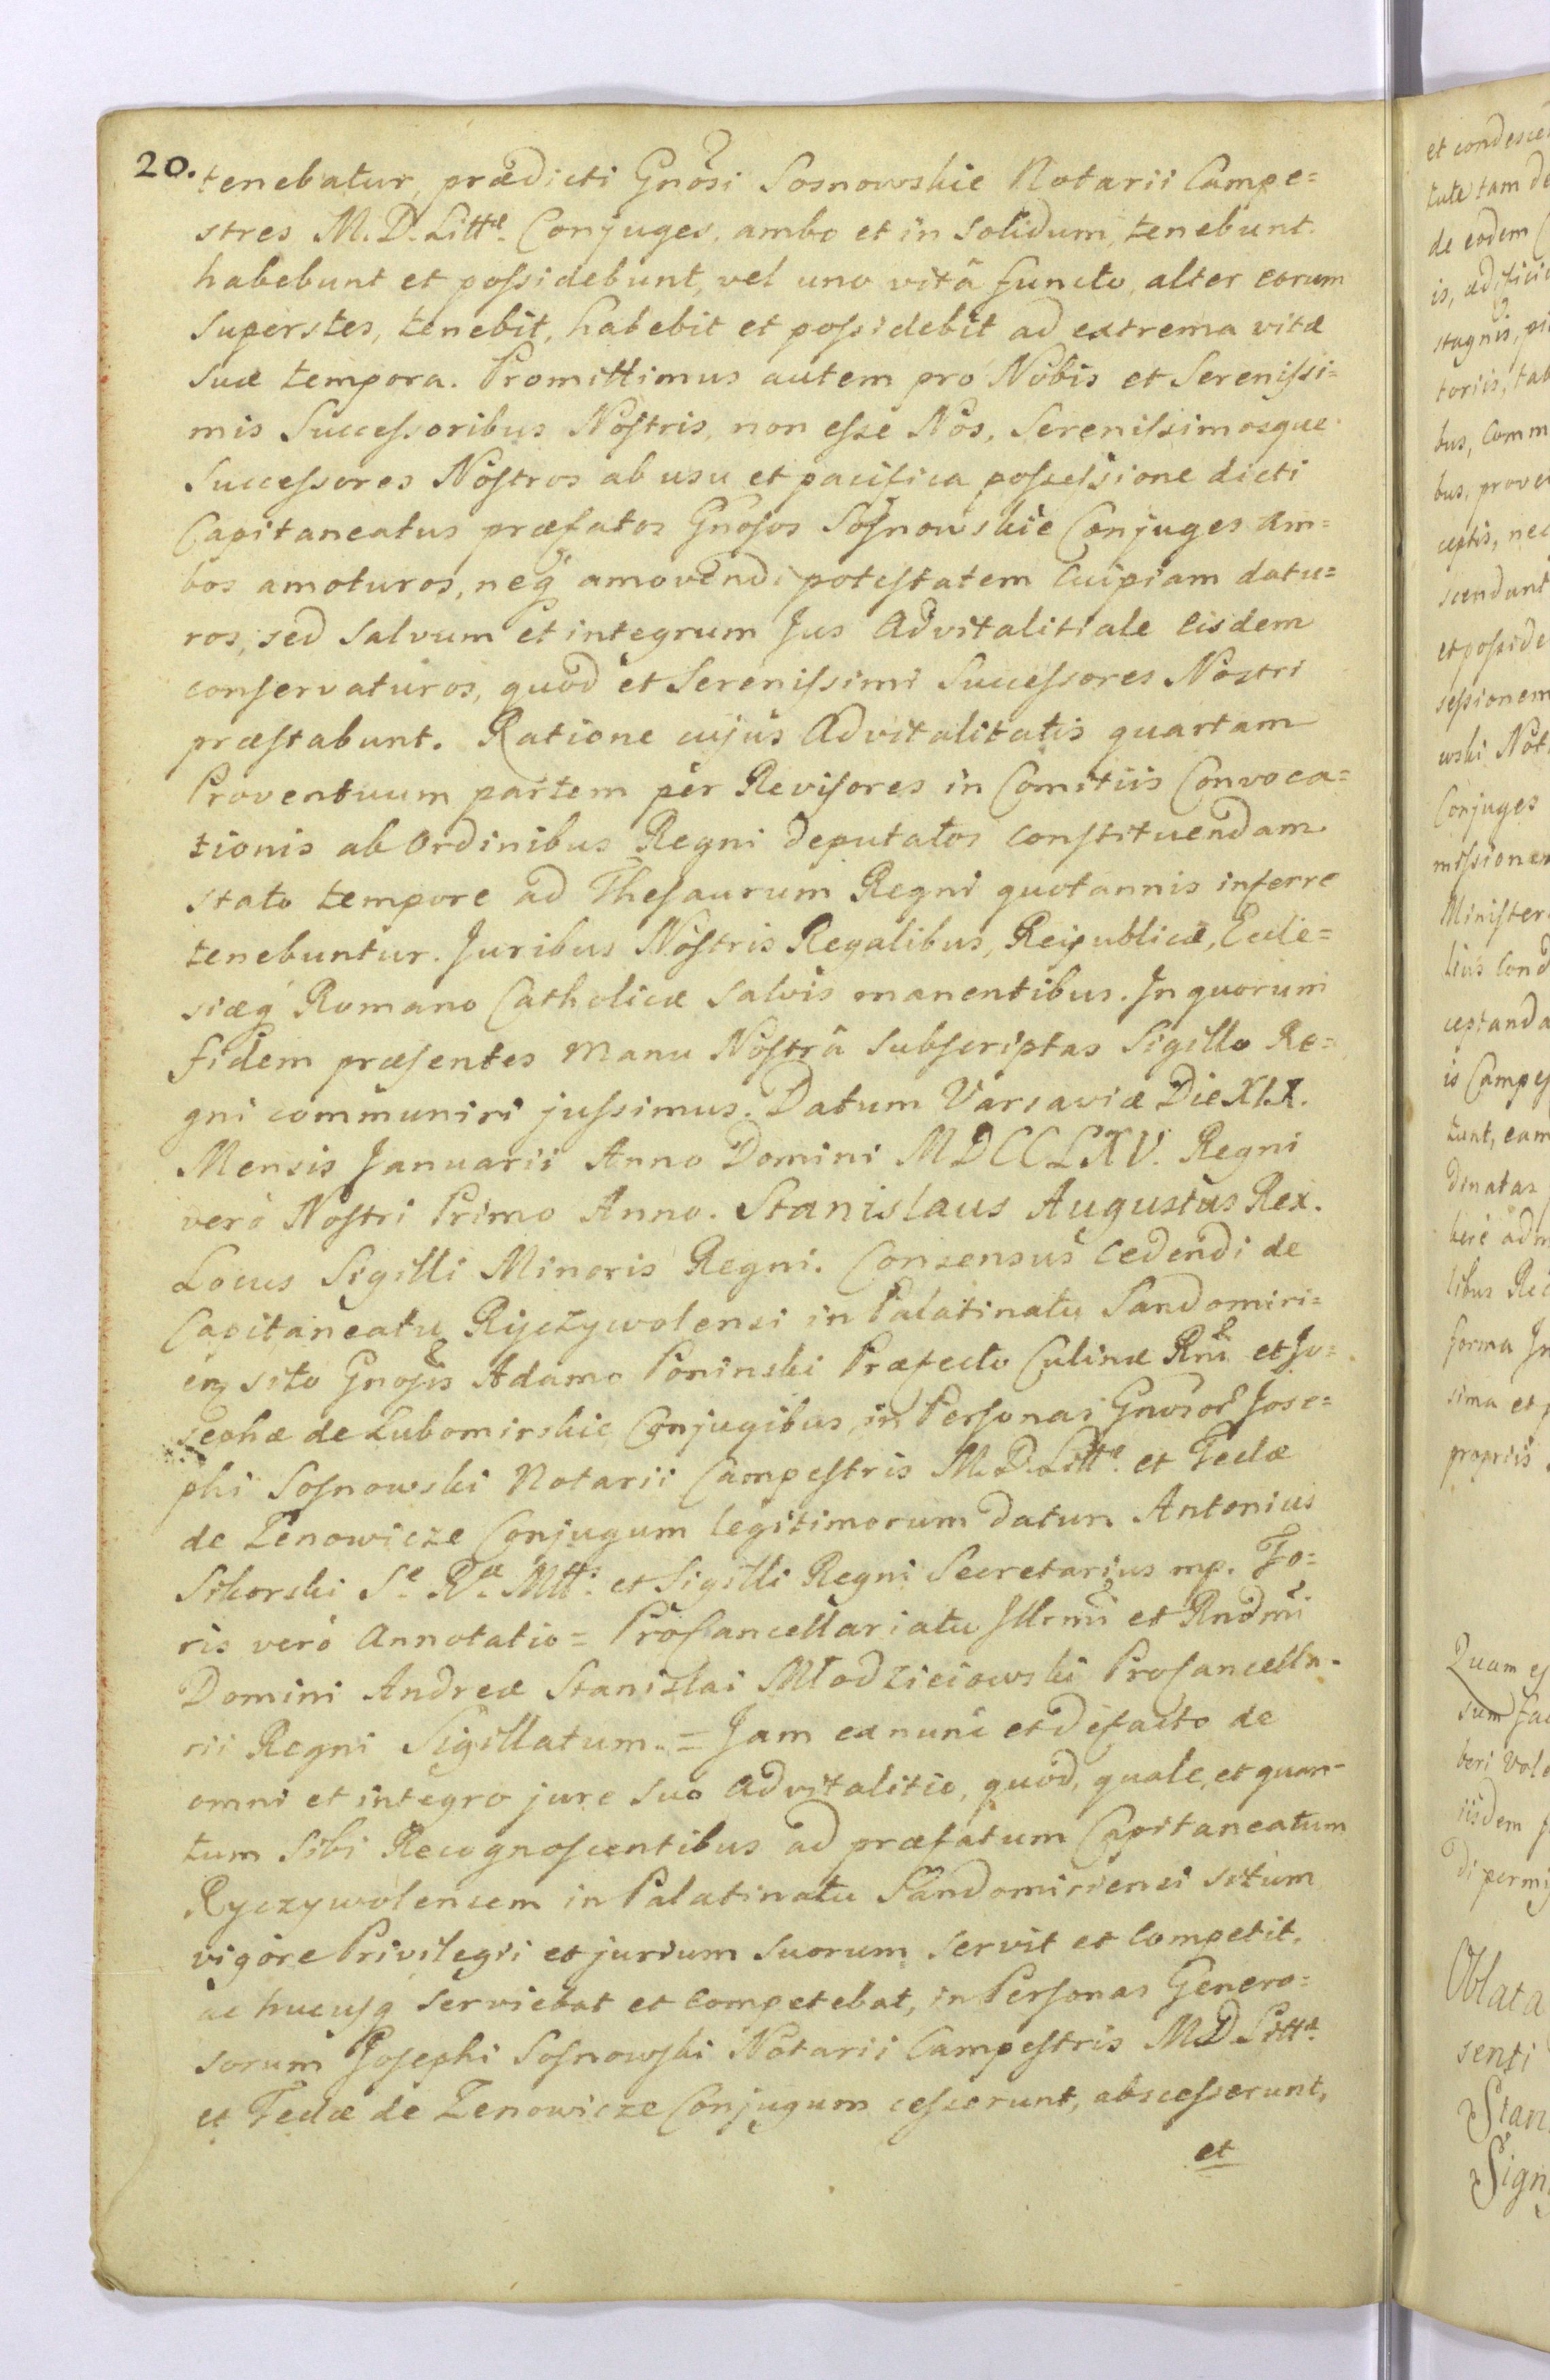 20. tenebatur, prædicti Gnosi Sosnowskie Notarii Campe=
stres M. D. Littæ. Conjuges, ambo et in solidum, tenebunt.
habebunt et possidebunt, vel uno vitâ functo, alter eorum
superstes, tenebit, habebit et possidebit ad extrema vitæ
suæ tempora. Promittimus autem pro Nobis et Serenissi=
mis Successoribus Nostris, non esse Nos, Serenissimosque
Successores Nostros ab usu et pacifica possessione dicti
Capitaneatus præfatos Gnosos Sosnowskie Conjuges am=
bos amoturos, neq amovendi potestatem cuipiam datu=
ros, sed salvum et integrum Jus Advitalitiale eisdem
conservaturos, quod et Serenissimi Successores Nostri
præstabunt. Ratione cujus Advitalitatis quartam
Proventuum partem per Revisores in Comitiis Convoca=
tionis ab Ordinibus Regni deputatos constituendam
stato tempore ad Thesaurum Regni quotannis inferre
tenebuntur. Juribus Nostris Regalibus, Reipublicæ, Eccle=
siæq Romano Catholicæ salvis manentibus. In quorum
fidem præsentes manu Nostrâ subscriptas Sigillo Re=
gni communiri jussimus. Datum Varsaviæ Die XIX.
Mensis Januarii Anno Domini MDCCLXV. Regni
verò Nostri Primo Anno. Stanislaus Augustus Rex.
Locus Sigilli Minoris Regni. Consensus cedendi de
Capitaneatu Ryczywolensi in Palatinatu Sandomiri=
en sito Gnosis Adamo Poninski Præfecto Culinæ Rni et Jo=
sephæ de Lubomirskie Conjugibus, in Personas Gnosor Jose=
phi Sosnowski Notarii Campestris M. D. Littæ. et Teclæ
de Zenowicze Conjugum legitimorum datur. Antonius
Sikorski Sæ Ræ Mttis et Sigilli Regni Secretarius mp. Fo=
ris verò Annotatio = Procancellariatu Illrmi et Rndmi
Domini Andreæ Stanislai Młodzieiowski Procancella=
rii Regni Sigillatum. = Jam ex nunc et de facto de
omni et integro jure suo advitalitio, quod, quale, et quan=
tum sibi Recognoscentibus ad præfatum Capitaneatum
Ryczywolensem in Palatinatu Sandomiriensi situm
vigore Privilegii et jurium suorum servit et competit,
ac hucusq serviebat et competebat, in Personas Genero=
sorum Josephi Sosnowski Notarii Campestris M D Littæ.
et Teclæ de Zenowicze Conjugum cesserunt, abscesserunt,
et
et condesce
tute tam de
de eodem
is, ædificii
stagnis, pi
toriis, tab
bus, comm
bus, prove
ceptis, nec
scendunt
et posside
sessionem
wski Not
Conjuges
missionem
Minister
lius cond
ceptanda
is Campes
tunt, eam
dinatas
here adm
libus Rec
forma In
sima et p
propriis
Quam
sum fac
beri vole
iisdem
di permi
Oblata
senti
Stan
Sign